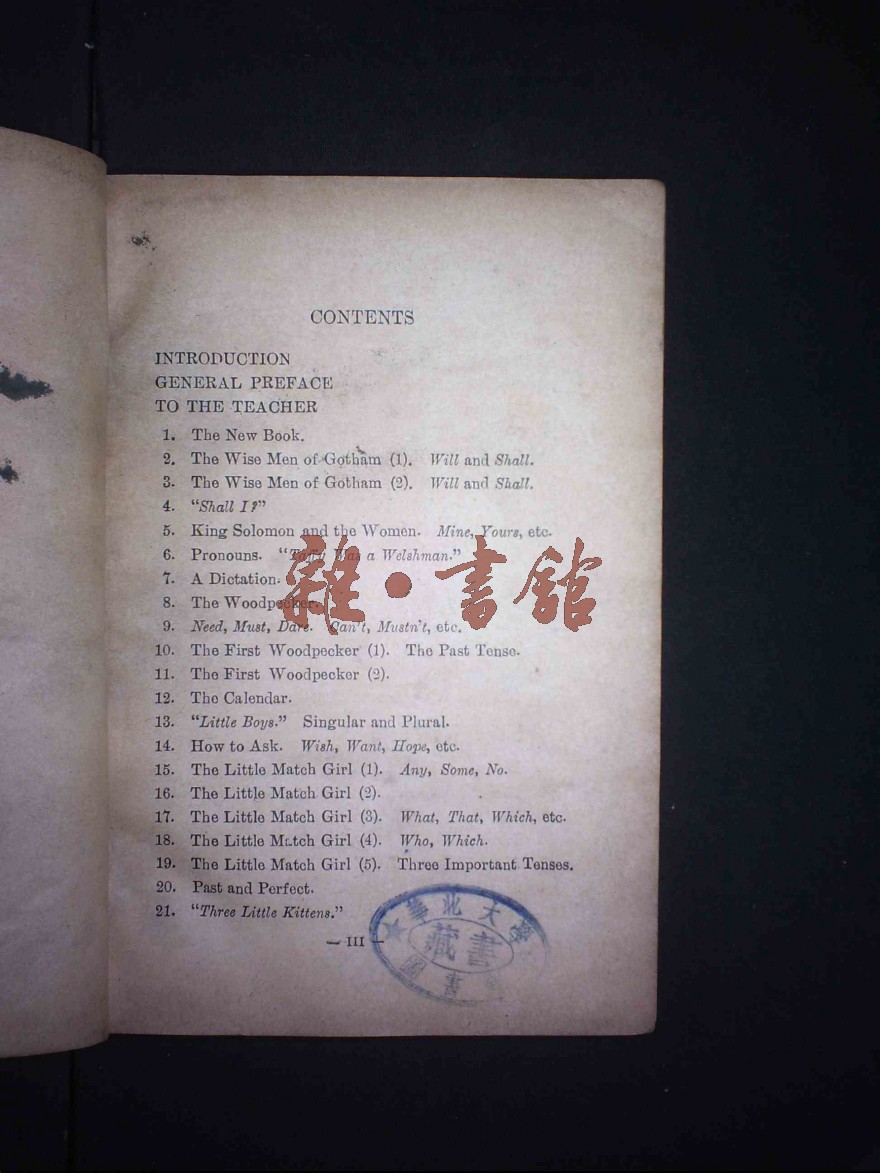 CONTENTS
INTRODUCTION
GENERAL PREFACE
TO THE TEACHER
1. The New Book.
2. The Wise Men of Gotham (1). Will and Shall.
3. The Wise Men of Gotham (2). Will and Shall.
4. “Shall I?”
5. King Solomon and the Women. Mine, Yours, etc.
6. Pronouns. “Taffy Was a Welshman.”
7. A Dictation.
8. The Woodpecker.
9. Need, Must, Dare. Can't, Mustn't, etc.
10. The First Woodpecker (1). The Past Tense.
11. The First Woodpecker (2).
12. The Calendar.
13. “Little Boys.” Singular and Plural.
14. How to Ask. Wish, Want, Hope, etc.
15. The Little Match Girl (1). Any, Some, No.
16. The Little Match Girl (2).
17. The Little Match Girl (3). What, That, Which, etc.
18. The Little Match Girl (4). Who, Which.
19. The Little Match Girl (5). Three Important Tenses.
20. Past and Perfect.
21. “Three Little Kittens.”
— III —
雜·書館
華北大學
藏書
圖書